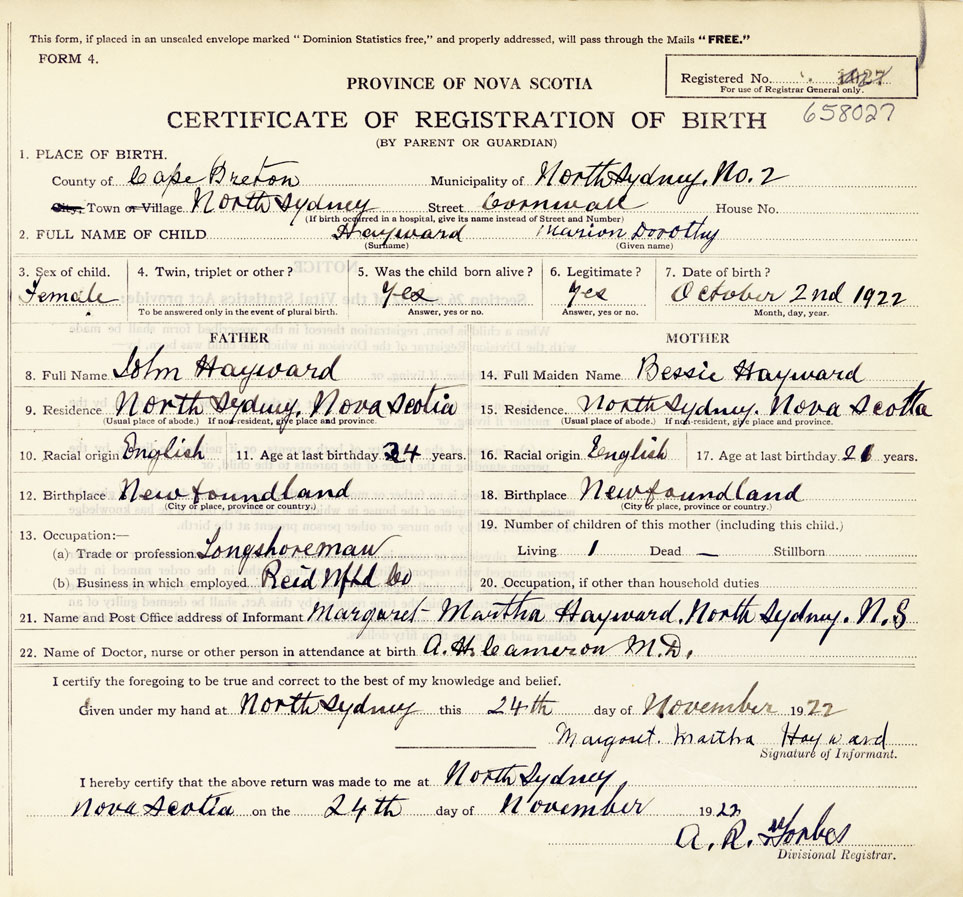 This form, if placed in an unsealed envelope marked "Dominion Statistics free," and properly addressed, will pass through the Mails "FREE."
FORM 4.
Registered No.
For use of Registrar General only.
658027
PROVINCE OF NOVA SCOTIA
CERTIFICATE OF REGISTRATION OF BIRTH
(BY PARENT OR GUARDIAN)
1. PLACE OF BIRTH.
County of Cape Breton Municipality of North Sydney. No. 2
City, Town or Village North Sydney Street Cornwall House No.
(If birth occurred in a hospital, give its name instead of Street and Number)
2. FULL NAME OF CHILD Hayward Marion Dorothy
(Surname) (Given name)
3. Sex of child. 4. Twin, triplet or other? 5. Was the child born alive? 6. Legitimate? 7. Date of birth?
Female Yes Yes October 2nd 1922
To be answered only in the event of plural birth. Answer, yes or no. Answer, yes or no. Month, day, year.
FATHER MOTHER
8. Full Name John Hayward 14. Full Maiden Name Bessie Hayward
9. Residence North Sydney. Nova Scotia 15. Residence. North Sydney. Nova Scotia
(Usual place of abode.) If non-resident, give place and province. (Usual place of abode.) If non-resident, give place and province.
10. Racial origin English 11. Age at last birthday 24 years. 16. Racial origin English 17. Age at last birthday 21 years.
12. Birthplace Newfoundland 18. Birthplace Newfoundland
(City or place, province or country.) (City or place, province or country.)
13. Occupation:— 19. Number of children of this mother (including this child.)
(a) Trade or profession Longshoreman Living 1 Dead — Stillborn
(b) Business in which employed Reid Nfld Co 20. Occupation, if other than household duties
21. Name and Post Office address of Informant Margaret Martha Hayward. North Sydney. N.S
22. Name of Doctor, nurse or other person in attendance at birth A. H. Cameron M.D.
I certify the foregoing to be true and correct to the best of my knowledge and belief.
Given under my hand at North Sydney this 24th day of November 1922
Margaret. Martha Hayward
Signature of Informant.
I hereby certify that the above return was made to me at North Sydney
Nova Scotia on the 24th day of November 1922
A. R. Forbes
Divisional Registrar.